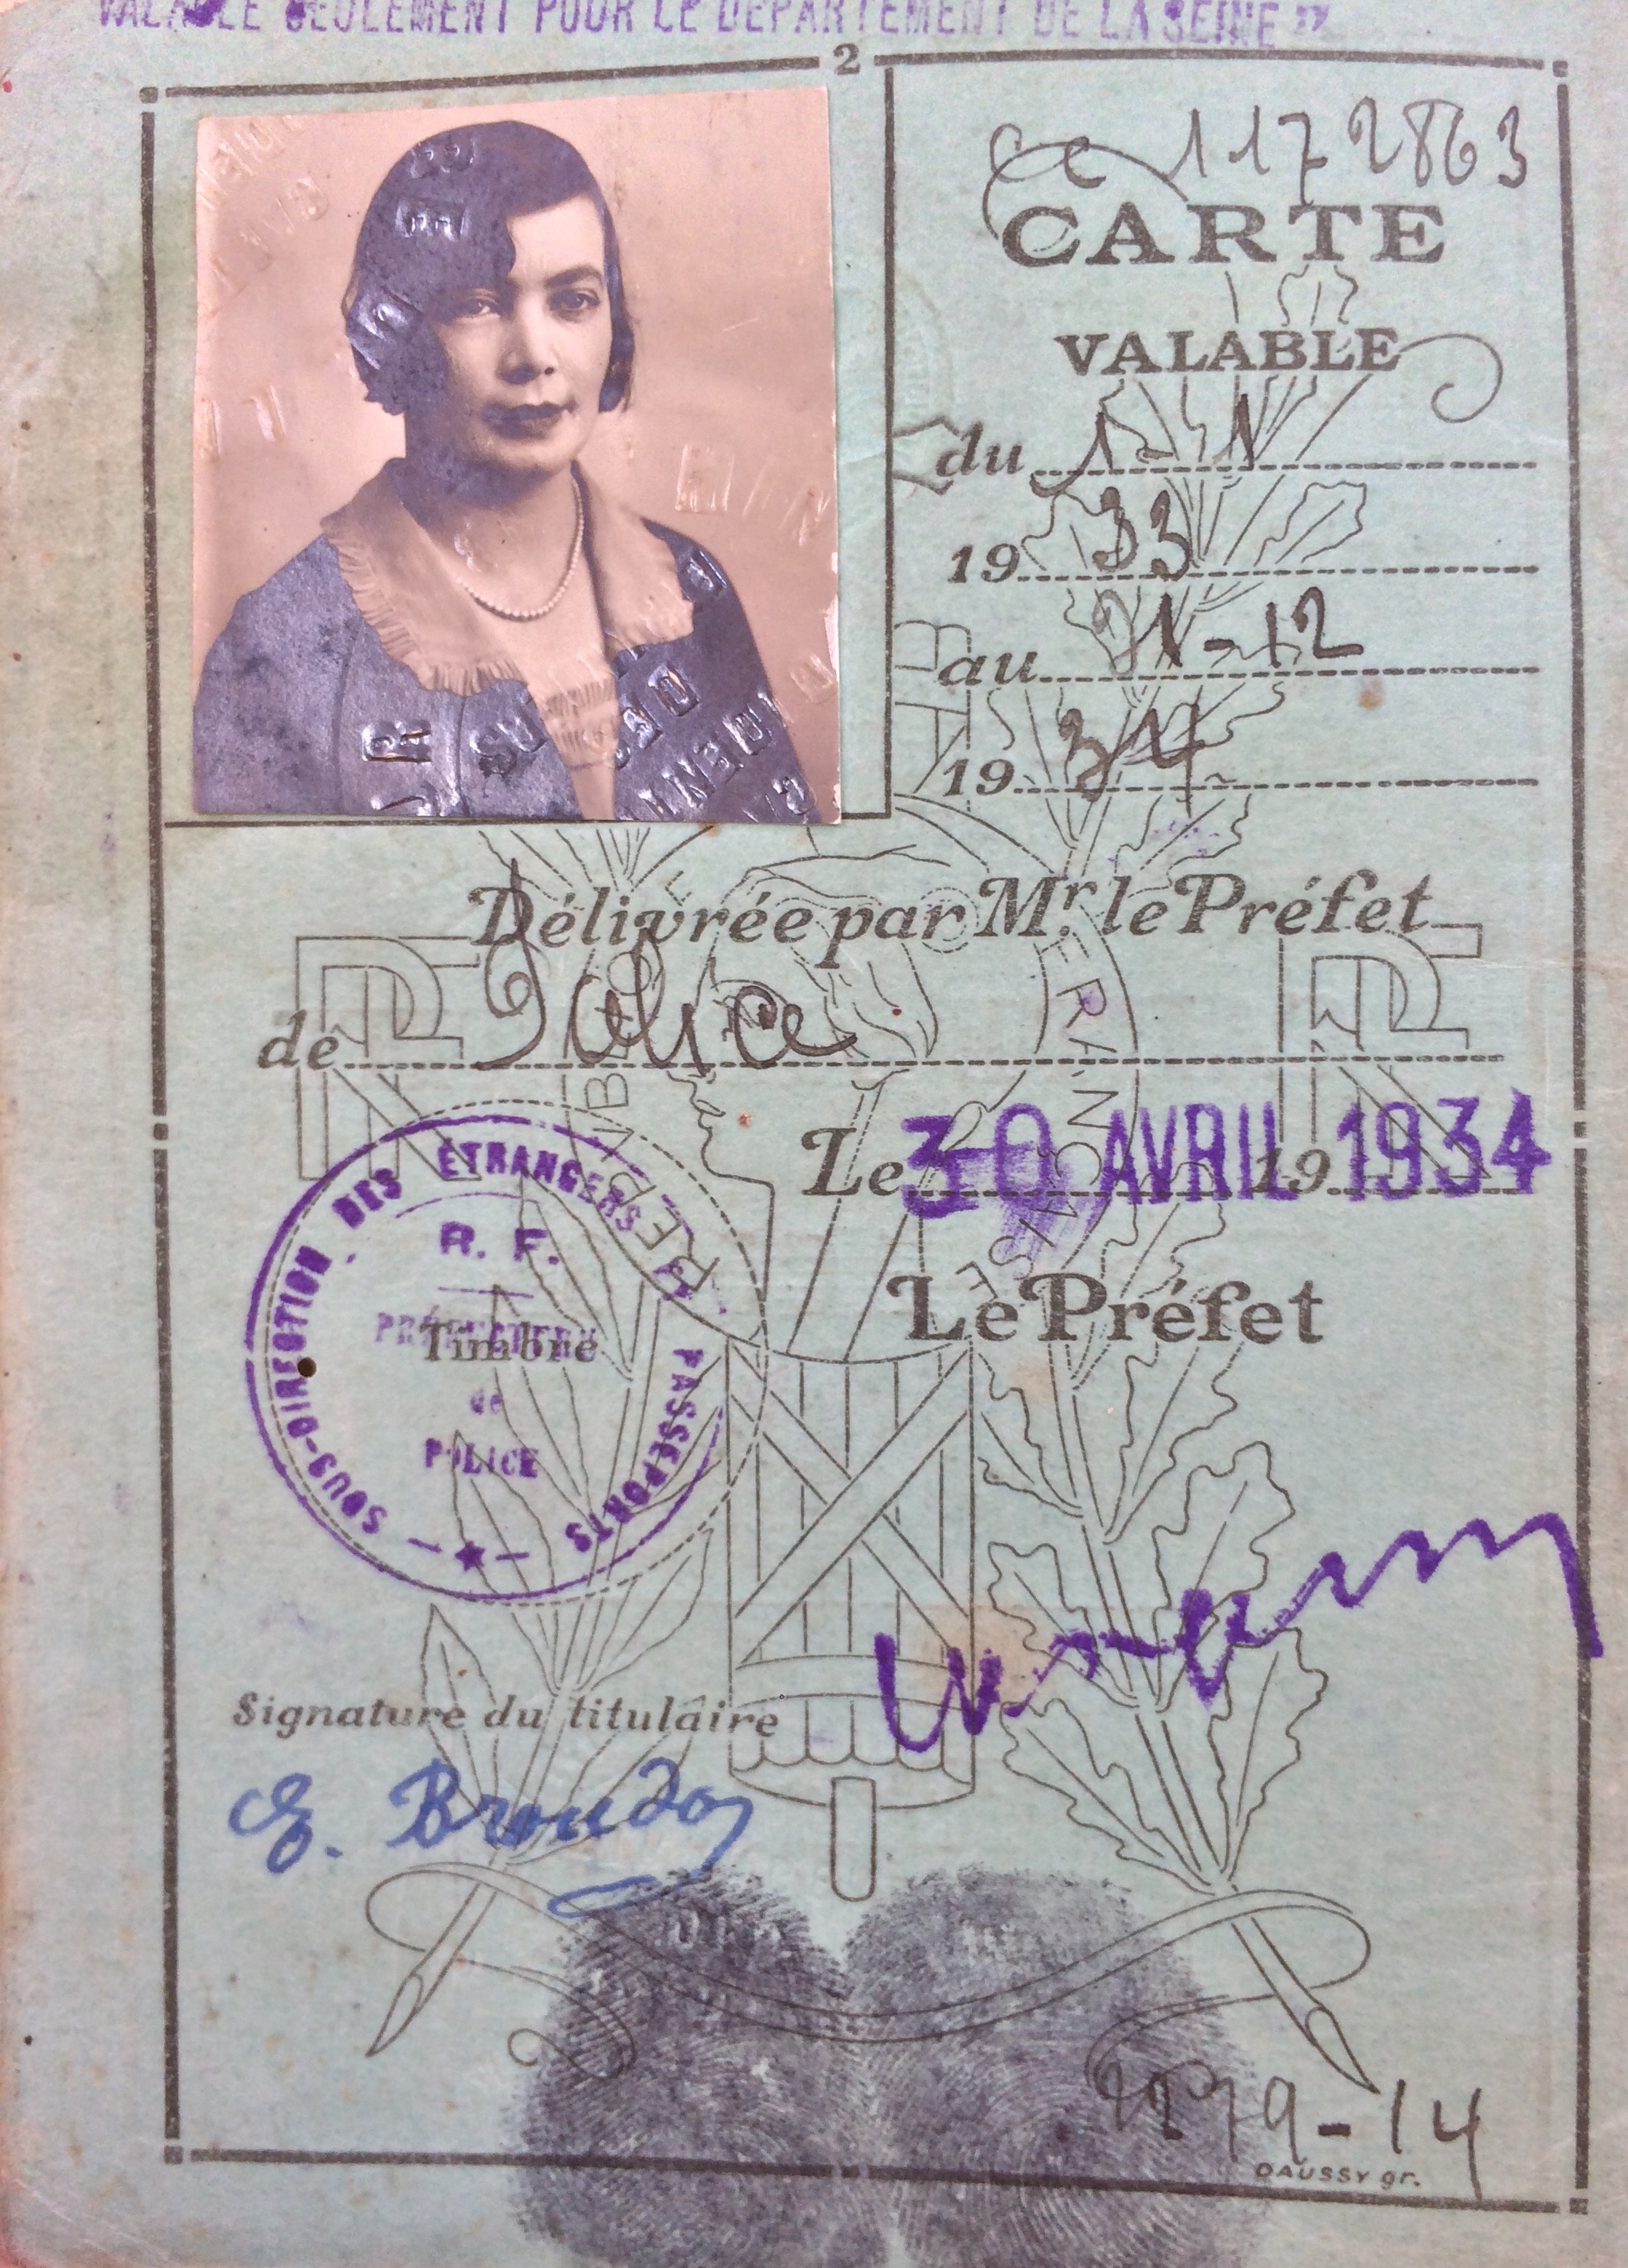 VALABLE SEULEMENT POUR LE DÉPARTEMENT DE LA SEINE"
2
1172863
CARTE
VALABLE
du 1-1
19 33
au 31-12
19 34
Délivrée par Mr. le Préfet
de Police
Le 30 AVRIL 1934 19
Le Préfet
SOUS-DIRECTION DES ÉTRANGERS ET PASSEPORTS
R. F.
PRÉFECTURE
Timbre
de
POLICE
Signature du titulaire
RF
RF
RÉPUBLIQUE FRANÇAISE
79-14
DAUSSY gr.